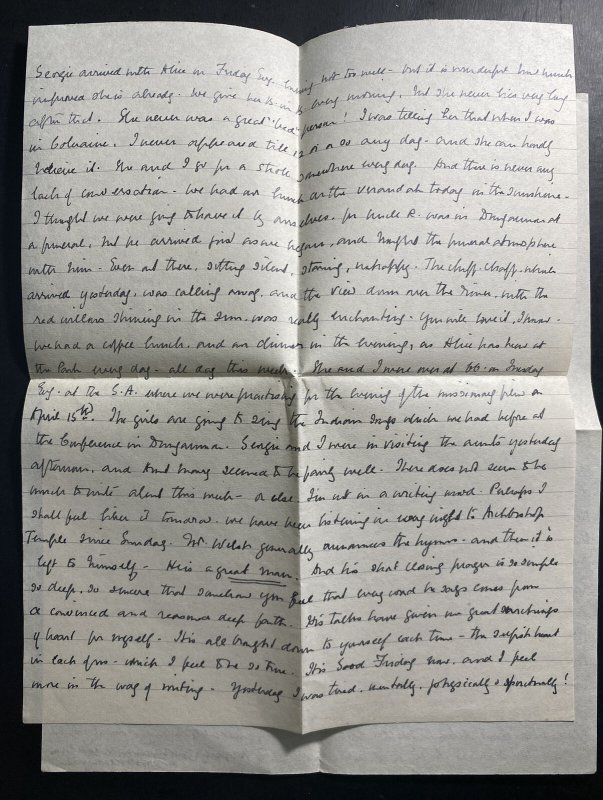 Georgie arrived with Alice on Friday Evg. looking not too well - but it is wonderful how much
improved she is already. We give her every morning, but she never lies very long
after that. She never was a great "bed" person! I was telling her that when I was
in Coleraine, I never appeared till 12 or so any day - and she can hardly
believe it. She and I go for a stroll somewhere every day. And there is never any
lack of conversation - We had our lunch on the verandah today in the sunshine -
I thought we were going to have it by ourselves, for Uncle R. was in Dungannon at
a funeral, but he arrived just as we began, and brought the funeral atmosphere
with him - Even out there, sitting silent, staring, unhappy. The chiff-chaff, which
arrived yesterday, was calling away, and the view down over the river, with the
red willows shining in the sun, was really enchanting - You will love it, I know -
We had a coffee lunch, and our dinner in the evening, as Alice has been at
the Park every day - all day this week. She and I were over at on Tuesday
Evg. at the S.A. where we were practising for the evening of the missionary play on
April 15th. The girls are going to sing the Indian songs which we had before at
the Conference in Dungannon. Georgie and I were in visiting the aunts yesterday
afternoon, and Aunt Mary seemed to be fairly well. There does not seem to be
much to write about this week - or else I'm not in a writing mood. Perhaps I
shall feel like it tomorrow. We have been listening in every night to Archbishop
Temple since Sunday. Mr. Welch generally announces the hymn - and then it is
left to himself - He is a great man. And his short closing prayer is so simple
so deep, so sincere that somehow you feel that every word he says comes from
a convinced and reasoned deep faith. His talks have given me great searchings
of heart for myself. It is all brought down to yourself each time - the selfish heart
in each of us - which I feel to be so true. It is Good Friday now, and I feel
more in the way of writing - Yesterday I was tired, mentally, physically & spiritually!